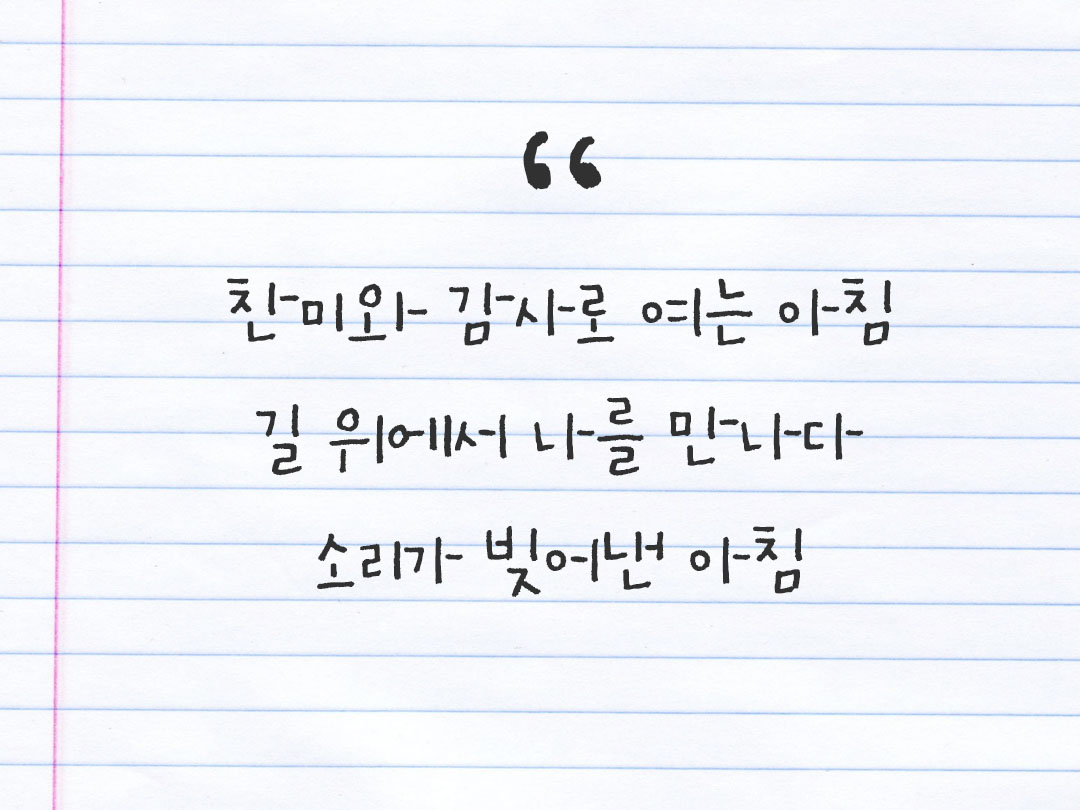 “
찬미와 감사로 여는 아침
길 위에서 나를 만나다
소리가 빚어낸 아침